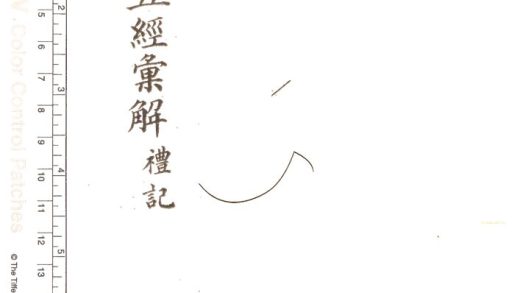 五經彙解
禮記
2
3
4
5
5
6
7
8
9
10
11
12
13
Color Control Patches
© The Tiffe